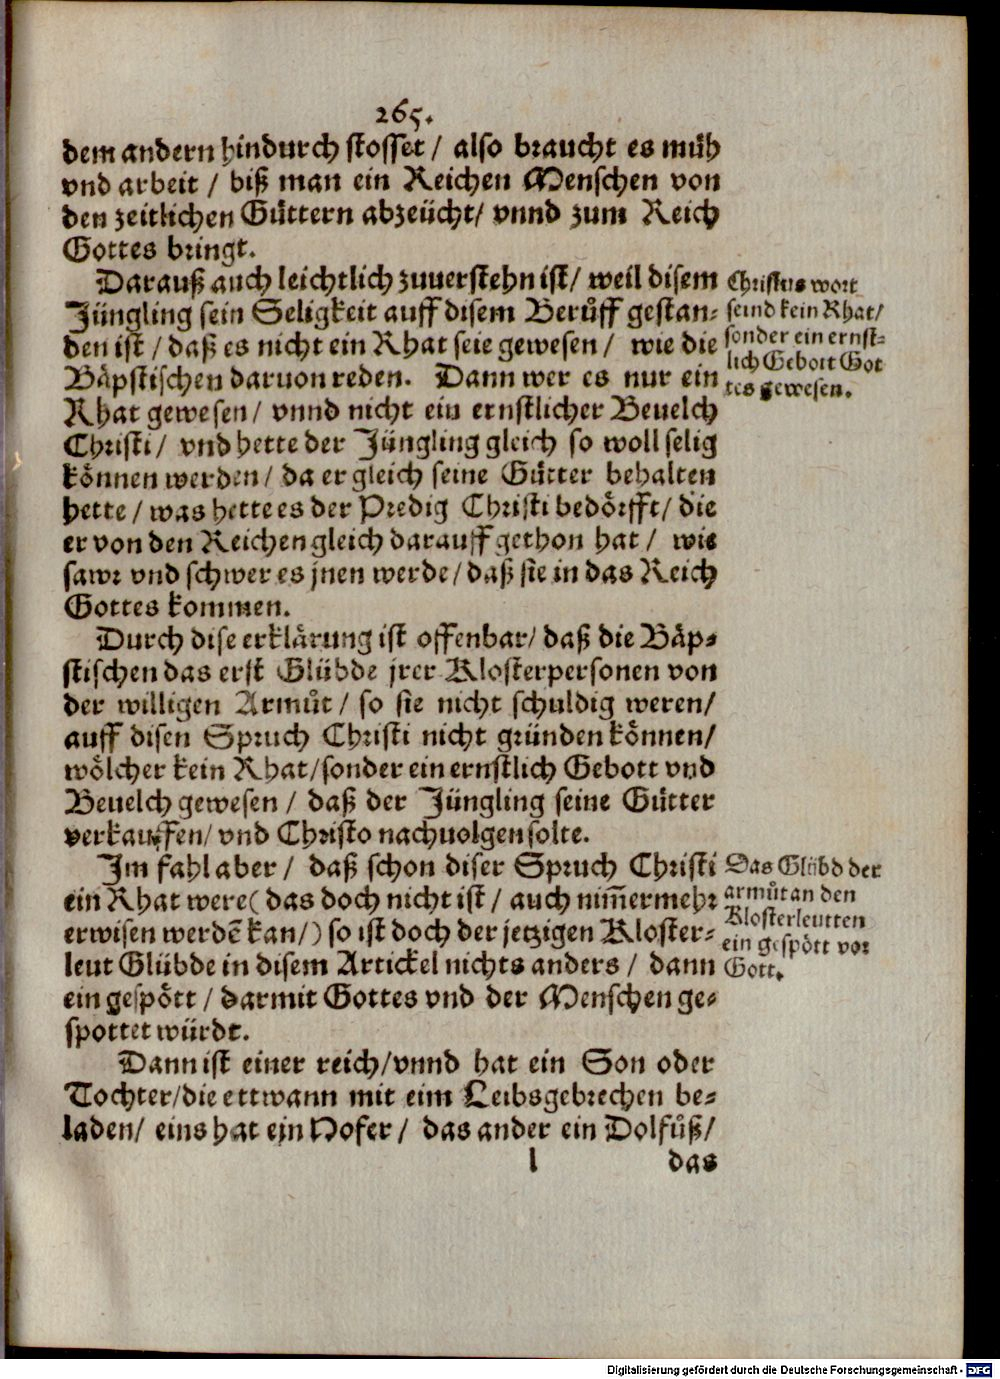 265.
dem andern hindurch stosset / also braucht es mühͤ
vnd arbeit / biß man ein Reichen Menschen von
den zeitlichen Guͤttern abzeücht/ vnnd zum Reich
Gottes bringt.
Darauß auch leichtlich zuuerstehn ist/ weil disem
Jüngling sein Seligkeit auff disem Beruͤff gestan-
den ist / daß es nicht ein Rhat seie gewesen / wie die
Baͤpstischen daruon reden. Dann wer es nur ein
Rhat gewesen / vnnd nicht ein ernstlicher Beuelch
Christi / vnd hette der Jüngling gleich so woll selig
koͤnnen werden / da er gleich seine Guͤtter behalten
hette / was hette es der Predig Christi bedoͤrfft / die
er von den Reichen gleich darauff gethon hat / wie
sawr vnd schwer es jnen werde / daß sie in das Reich
Gottes kommen.
Christus wort
seind kein Rhat/
sonder ein ernst-
lich Gebott Got
tes gewesen.
Durch dise erklaͤrung ist offenbar / daß die Baͤp-
stischen das erst Glübde jrer Klosterpersonen von
der willigen Armuͤt / so sie nicht schuldig weren /
auff disen Spruch Christi nicht gründen koͤnnen /
woͤlcher kein Rhat / sonder ein ernstlich Gebott vnd
Beuelch gewesen / daß der Jüngling seine Guͤtter
verkauffen / vnd Christo nachuolgen solte.
Im fahl aber / daß schon diser Spruch Christi
ein Rhat were ( das doch nicht ist / auch nim̄ermehr
erwisen werdē kan / ) so ist doch der jetzigen Kloster-
leut Glübde in disem Artickel nichts anders / dann
ein gespoͤtt / darmit Gottes vnd der Menschen ge-
spottet würdt.
Das Glübd der
armuͤt an den
Klosterleutten
ein gespoͤtt vor
Gott.
Dann ist einer reich / vnnd hat ein Son oder
Tochter / die ettwann mit eim Leibsgebrechen be-
laden / eins hat ein Hofer / das ander ein Dolfuͤß /
l das
Digitalisierung gefördert durch die Deutsche Forschungsgemeinschaft - DFG